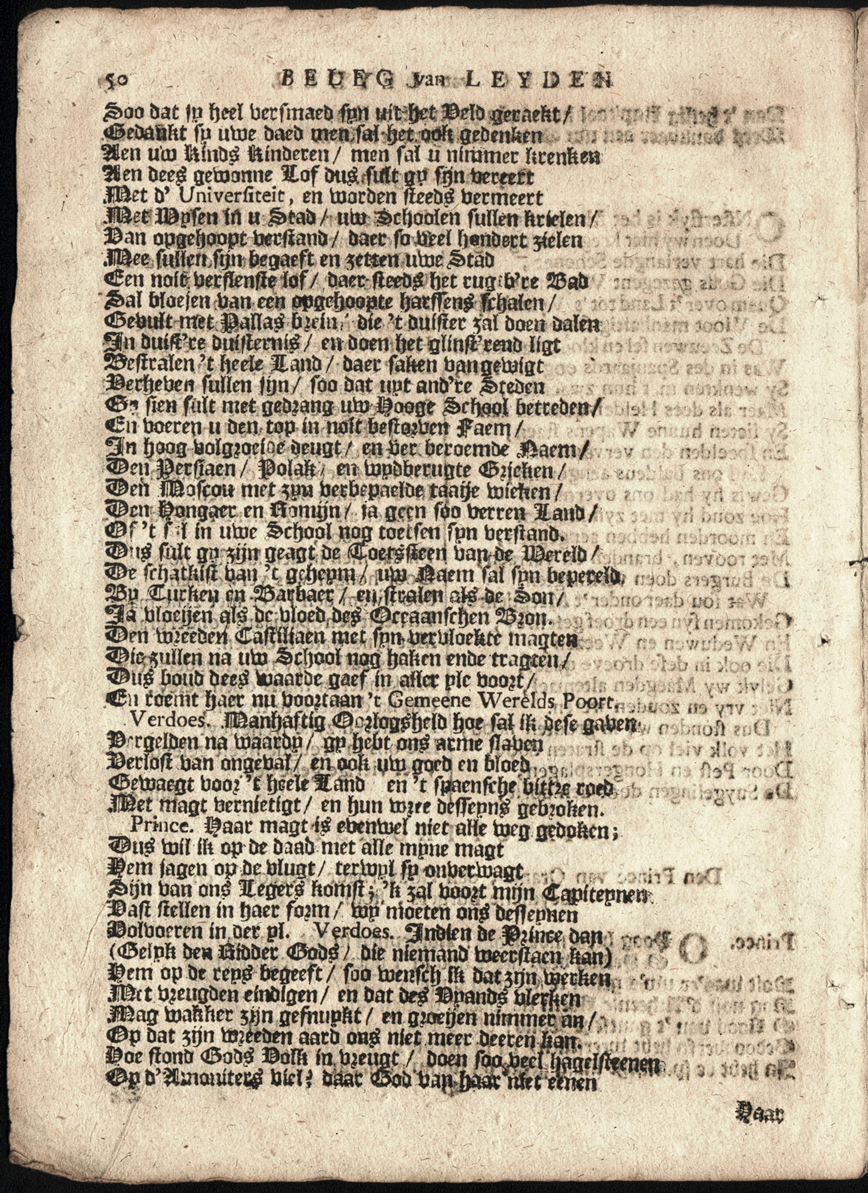 50 BELEG van LEYDEN
Soo dat sy heel versmaed syn uit het Veld geraekt/
Gedankt sy uwe daed men sal het ook gedenken
Aen uw Kinds Kinderen/ men sal u nimmer krenken
Aen dees gewonne Lof dus sult gy sijn vereert
Met d' Universiteit, en worden steeds vermeert
Met Wysen in u Stad/ uw Schoolen sullen krielen/
Van opgehoopt verstand/ daer so veel hondert zielen
Mee sullen sijn begaeft en zetten uwe Stad
Een noit verslenste lof/ daer steeds het rugb're Bad
Sal bloejen van een opgehoopte harssens schalen/
Gevult met Pallas brein/ die 't duister zal doen dalen
In duist're duisternis/ en doen het glinst'rend ligt
Bestralen 't heele Land/ daer saken van gewigt
Verheven sullen sijn/ soo dat uyt and're Steden
Gy sien sult met gedrang uw Hooge School betreden/
En voeren u den top in noit bestorven Faem/
In hoog volgroeide deugt/ en ver beroemde Naem/
Den Persiaen/ Polak/ en wydberugte Grieken/
Den Moscou met zyn verbepaelde taaije wieken/
Den Hongaer en Romijn/ ja geen soo verren Land/
Of 't sal in uwe School nog toetsen syn verstand.
Dus sult gy zijn geagt de Toetssteen van de Wereld/
De schatkist van 't geheym/ uw Naem sal syn bepereld,
By Turken en Barbaer/ en stralen als de Son/
Ja vloeijen als de vloed des Oceaanschen Bron.
Den wreeden Castiliaen met syn vervloekte magten
Die zullen na uw School nog haken ende tragten/
Dus houd dees waarde gaef in aller yle voort/
En roemt haer nu voortaan 't Gemeene Werelds Poort.
Verdoes. Manhaftig Oorlogsheld hoe sal ik dese gaven
Vergelden na waardy/ gy hebt ons arme slaven
Verlost van ongeval/ en ook uw goed en bloed
Gewaegt voor 't heele Land en 't spaensche bittre roed
Met magt vernietigt/ en hun wree desseyns gebroken.
Prince. Haar magt is evenwel niet alle weg gedoken;
Dus wil ik op de daad met alle myne magt
Hem jagen op de vlugt/ terwyl sy onverwagt
Sijn van ons Legers komst; 'k zal voort mijn Capiteynen
Vast stellen in haer form/ wy moeten ons desseynen
Volvoeren in der yl. Verdoes. Indien de Prince dan
(Gelyk den Ridder Gods/ die niemand weerstaen kan)
Hem op de reys begeeft/ soo wensch ik dat zijn werken
Met vreugden eindigen/ en dat des Vyands vlerken
Mag wakker zijn gesnuykt/ en groeijen nimmer an/
Op dat zijn wreeden aard ons niet meer deeren kan.
Hoe stond Gods Volk in vreugt/ doen soo veel hagelsteenen
Op d'Amoniters viel? daar God van haar niet eenen
Haar